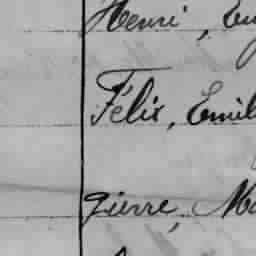 Henri, Eu
Félix, Emil
Pierre, Ma